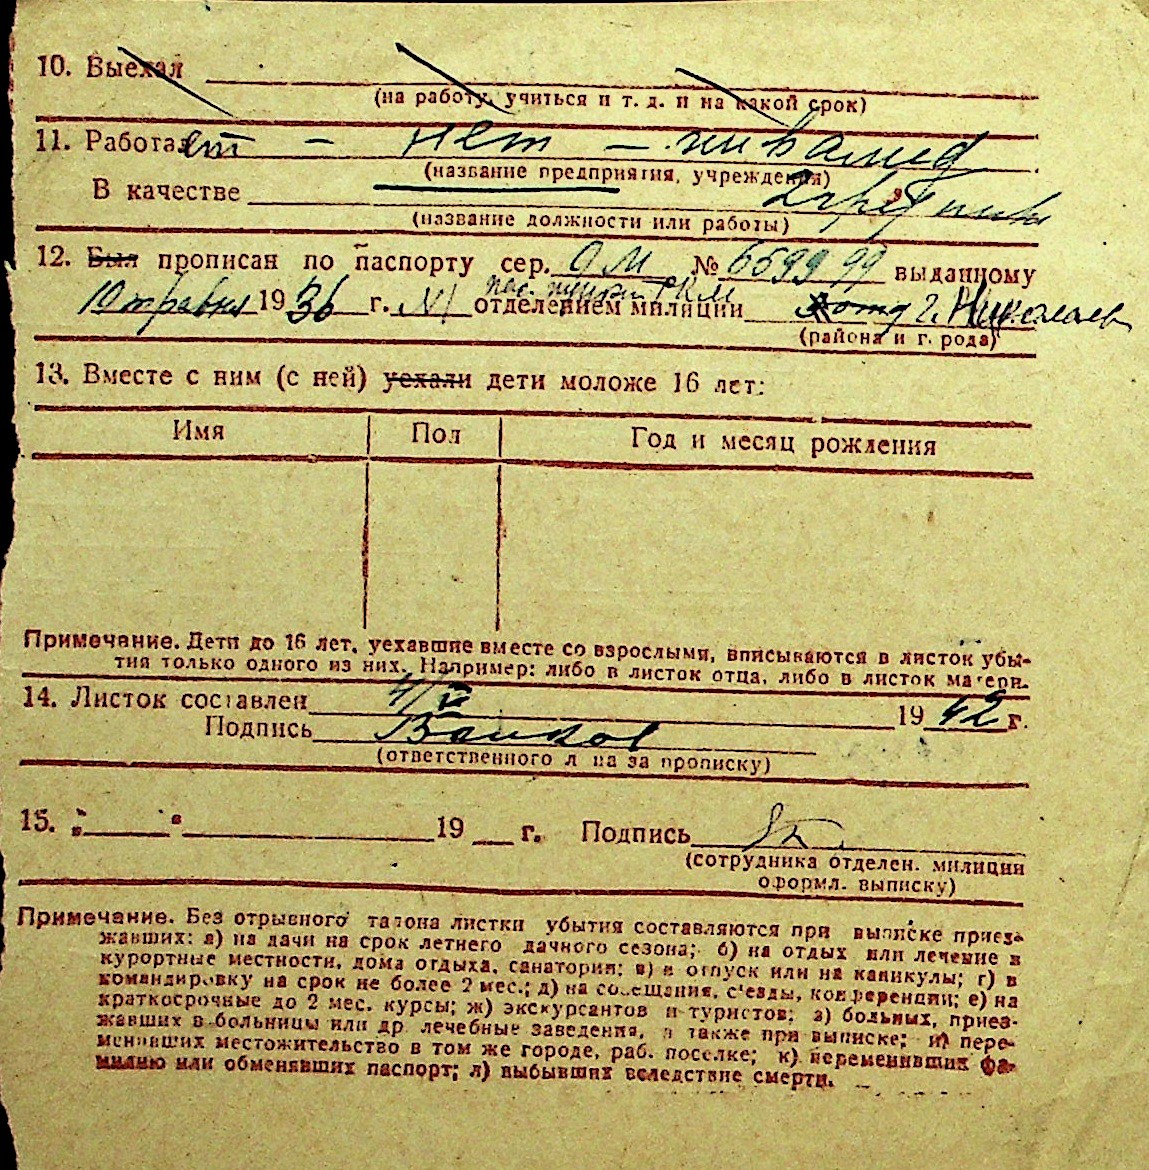 10. Выехал
(на работу, учиться и т. д. и на какой срок)
11. Работает — нет — инвалид
(название предприятия, учреждения)
В качестве 2 группы
(название должности или работы)
12. Был прописан по паспорту сер. ОМ № 659999 выданному
10 травня 1936 г. N1 отделением милиции г. Николаев
(района и г. рода)
13. Вместе с ним (с ней) уехали дети моложе 16 лет:
Имя Пол Год и месяц рождения
Примечание. Дети до 16 лет, уехавшие вместе со взрослыми, вписываются в листок убы-
тия только одного из них. Например: либо в листок отца, либо в листок матери.
14. Листок составлен 4/V 1942 г.
Подпись
(ответственного л на за прописку)
15. „ " 19 г. Подпись
(сотрудника отделен. милиции
оформл. выписку)
Примечание. Без отрывного талона листки убытия составляются при выписке приез-
жавших: а) на дачи на срок летнего дачного сезона; б) на отдых или лечение в
курортные местности, дома отдыха, санатории; в) в отпуск или на каникулы; г) в
командировку на срок не более 2 мес.; д) на совещания, с'езды, конференции; е) на
краткосрочные до 2 мес. курсы; ж) экскурсантов и туристов; з) больных, приез-
жавших в больницы или др. лечебные заведения, а также при выписке; и) пере-
менивших местожительство в том же городе, раб. поселке; к) переменивших фа-
милию или обменявших паспорт; л) выбывших вследствие смерти.